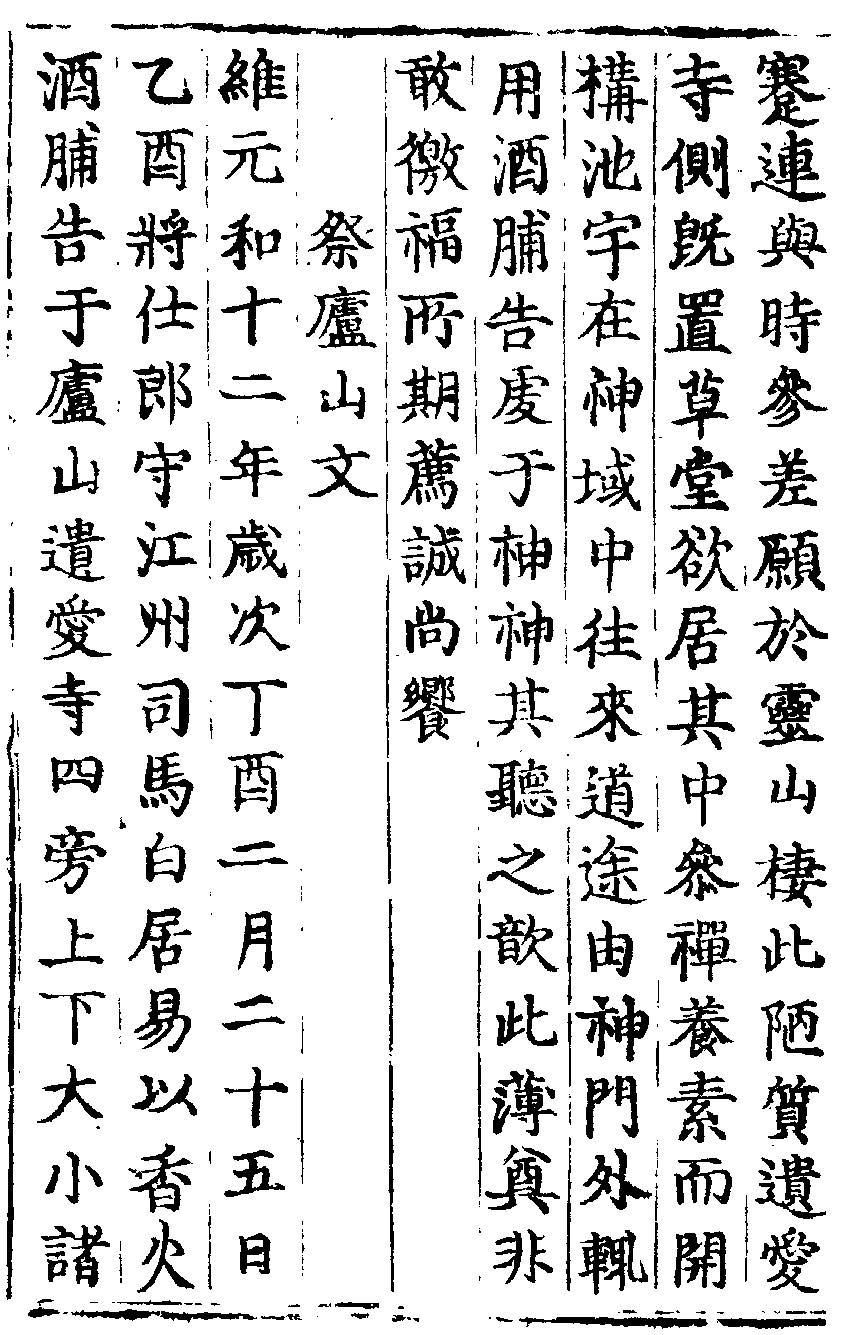 蹇連與時參差願於靈山棲此陋質遺愛
寺側既置草堂欲居其中叅禪養素而開
構池宇在神域中往來道途由神門外輒
用酒脯告虔于神神其聽之歆此薄奠非
敢徼福所期薦誠尚饗
祭廬山文
維元和十二年歲次丁酉二月二十五日
乙酉將仕郎守江州司馬白居易以香火
酒脯告于廬山遺愛寺四旁上下大小諸